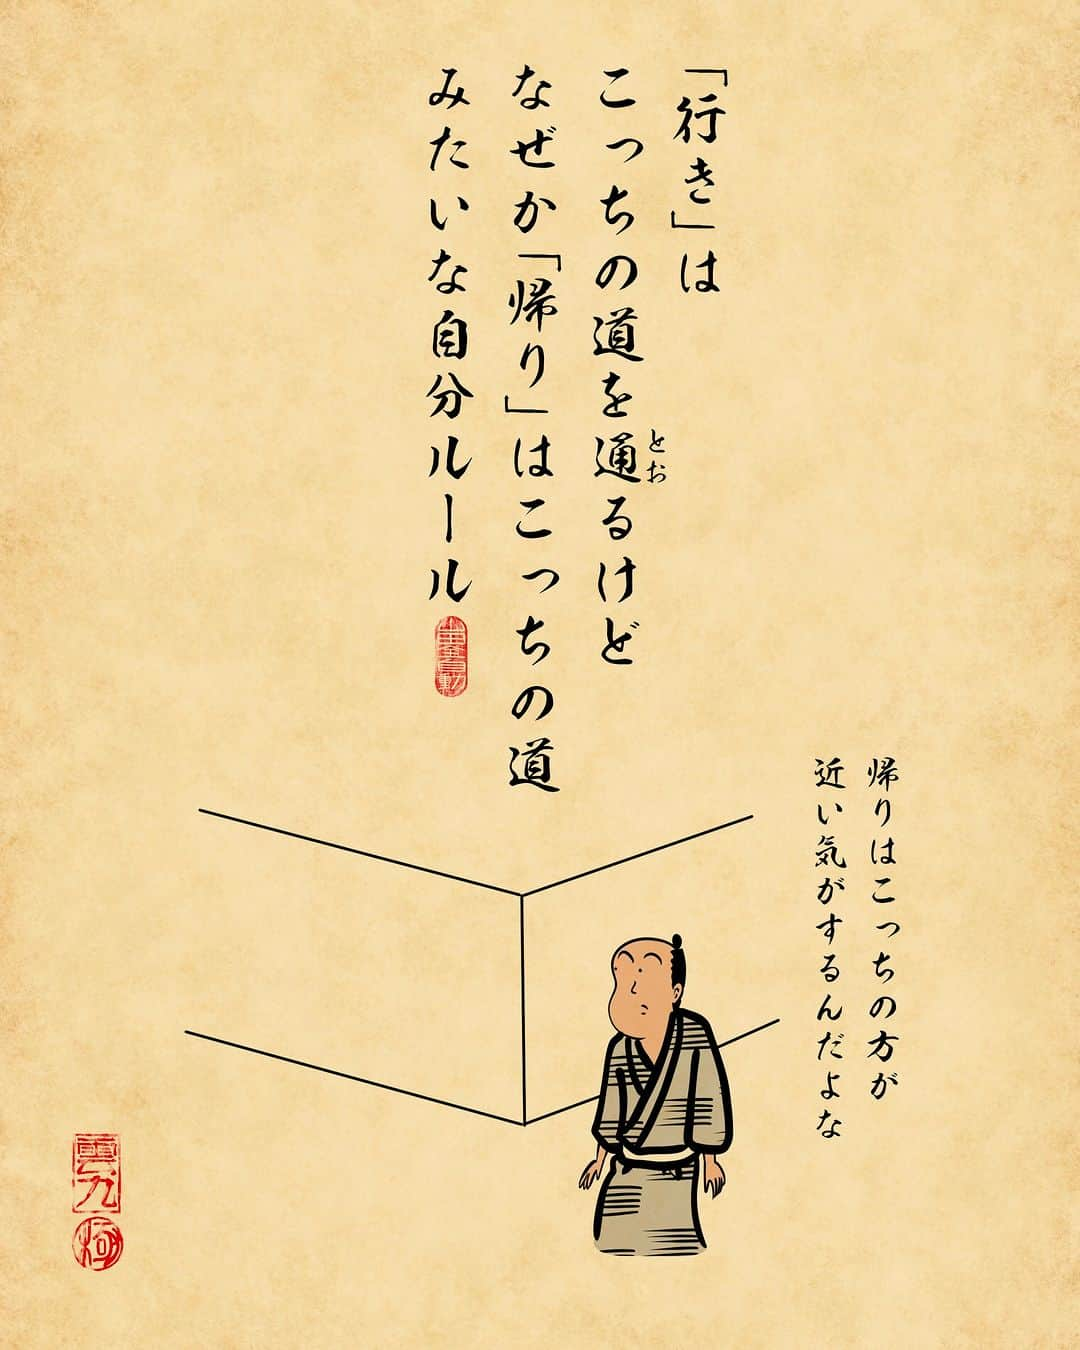 「行き」は
こっちの道を通るけど
とお
なぜか「帰り」はこっちの道
みたいな自分ルール
帰りはこっちの方が
近い気がするんだよな